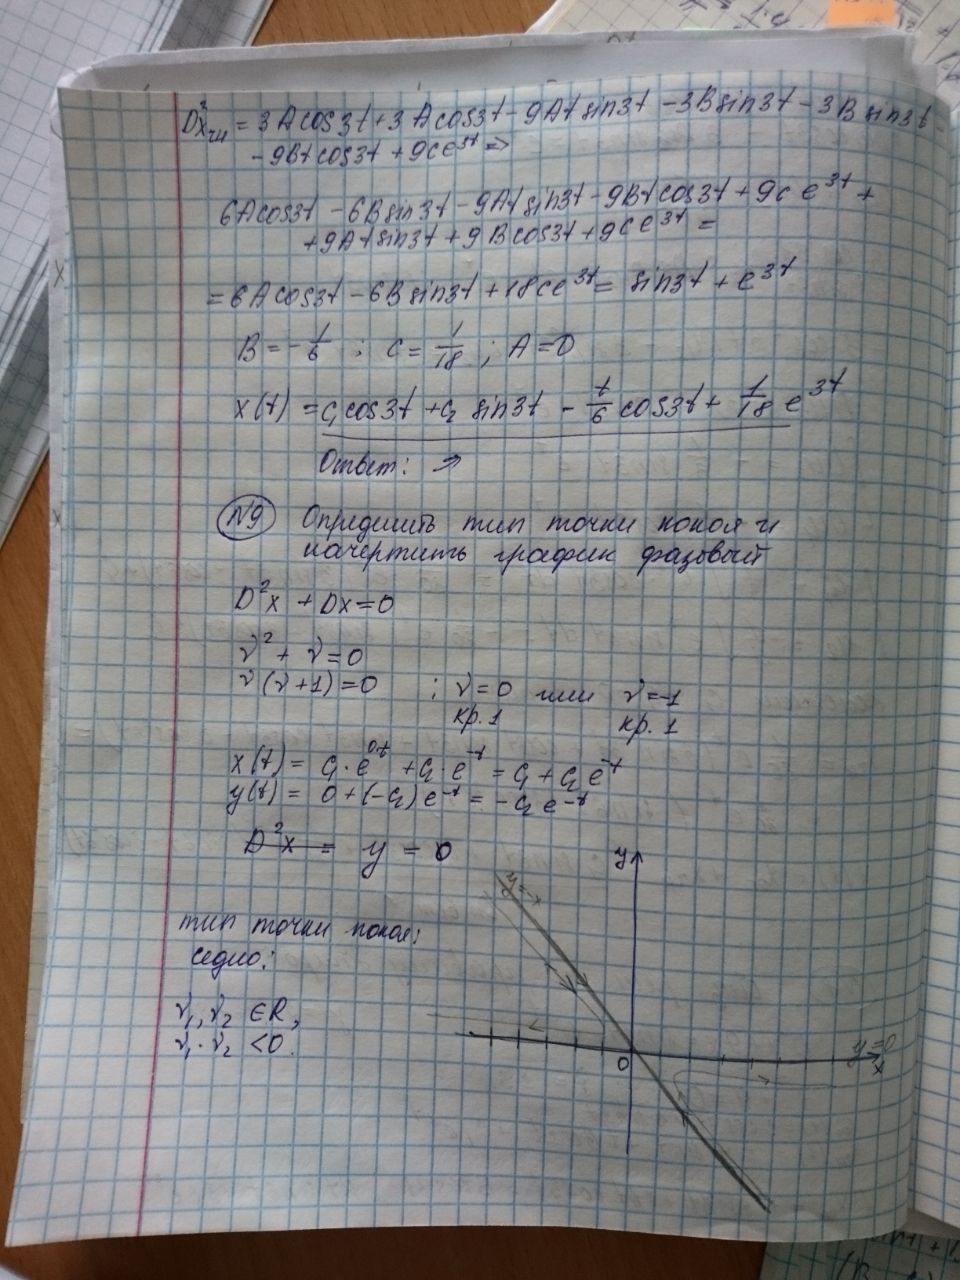 D²xчн = 3Acos3t + 3Acos3t - 9At sin3t - 3Bsin3t - 3Bsin3t -
- 9Bt cos3t + 9Ce^3t ⇒
6Acos3t - 6Bsin3t - 9At sin3t - 9Bt cos3t + 9Ce^3t +
+ 9At sin3t + 9Bcos3t + 9Ce^3t =
= 6Acos3t - 6Bsin3t + 18Ce^3t = sin3t + e^3t
B = -1/6 ; C = 1/18 ; A = 0
x(t) = C₁cos3t + C₂ sin3t - t/6 cos3t + 1/18 e^3t
Ответ: ↗
N9 Определить тип точки покоя и
начертить график фазовый
D²x + Dx = 0
ν² + ν = 0
ν(ν+1) = 0 ; ν = 0 или ν = -1
кр. 1 кр. 1
x(t) = C₁·e^0·t + C₂·e^-t = C₁ + C₂e^-t
y(t) = 0 + (-C₂)e^-t = -C₂e^-t
D²x = y = 0
y
y = -x
тип точки покоя:
седло:
ν₁, ν₂ ∈ R,
ν₁·ν₂ < 0.
y = 0
x
0